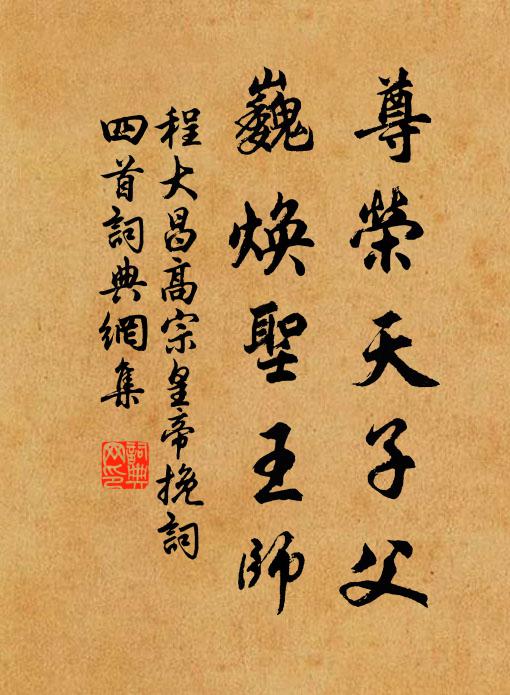 尊榮天子父
巍焕聖王師
程大昌高宗皇帝挽詞
四首詞典網集
詞典网印